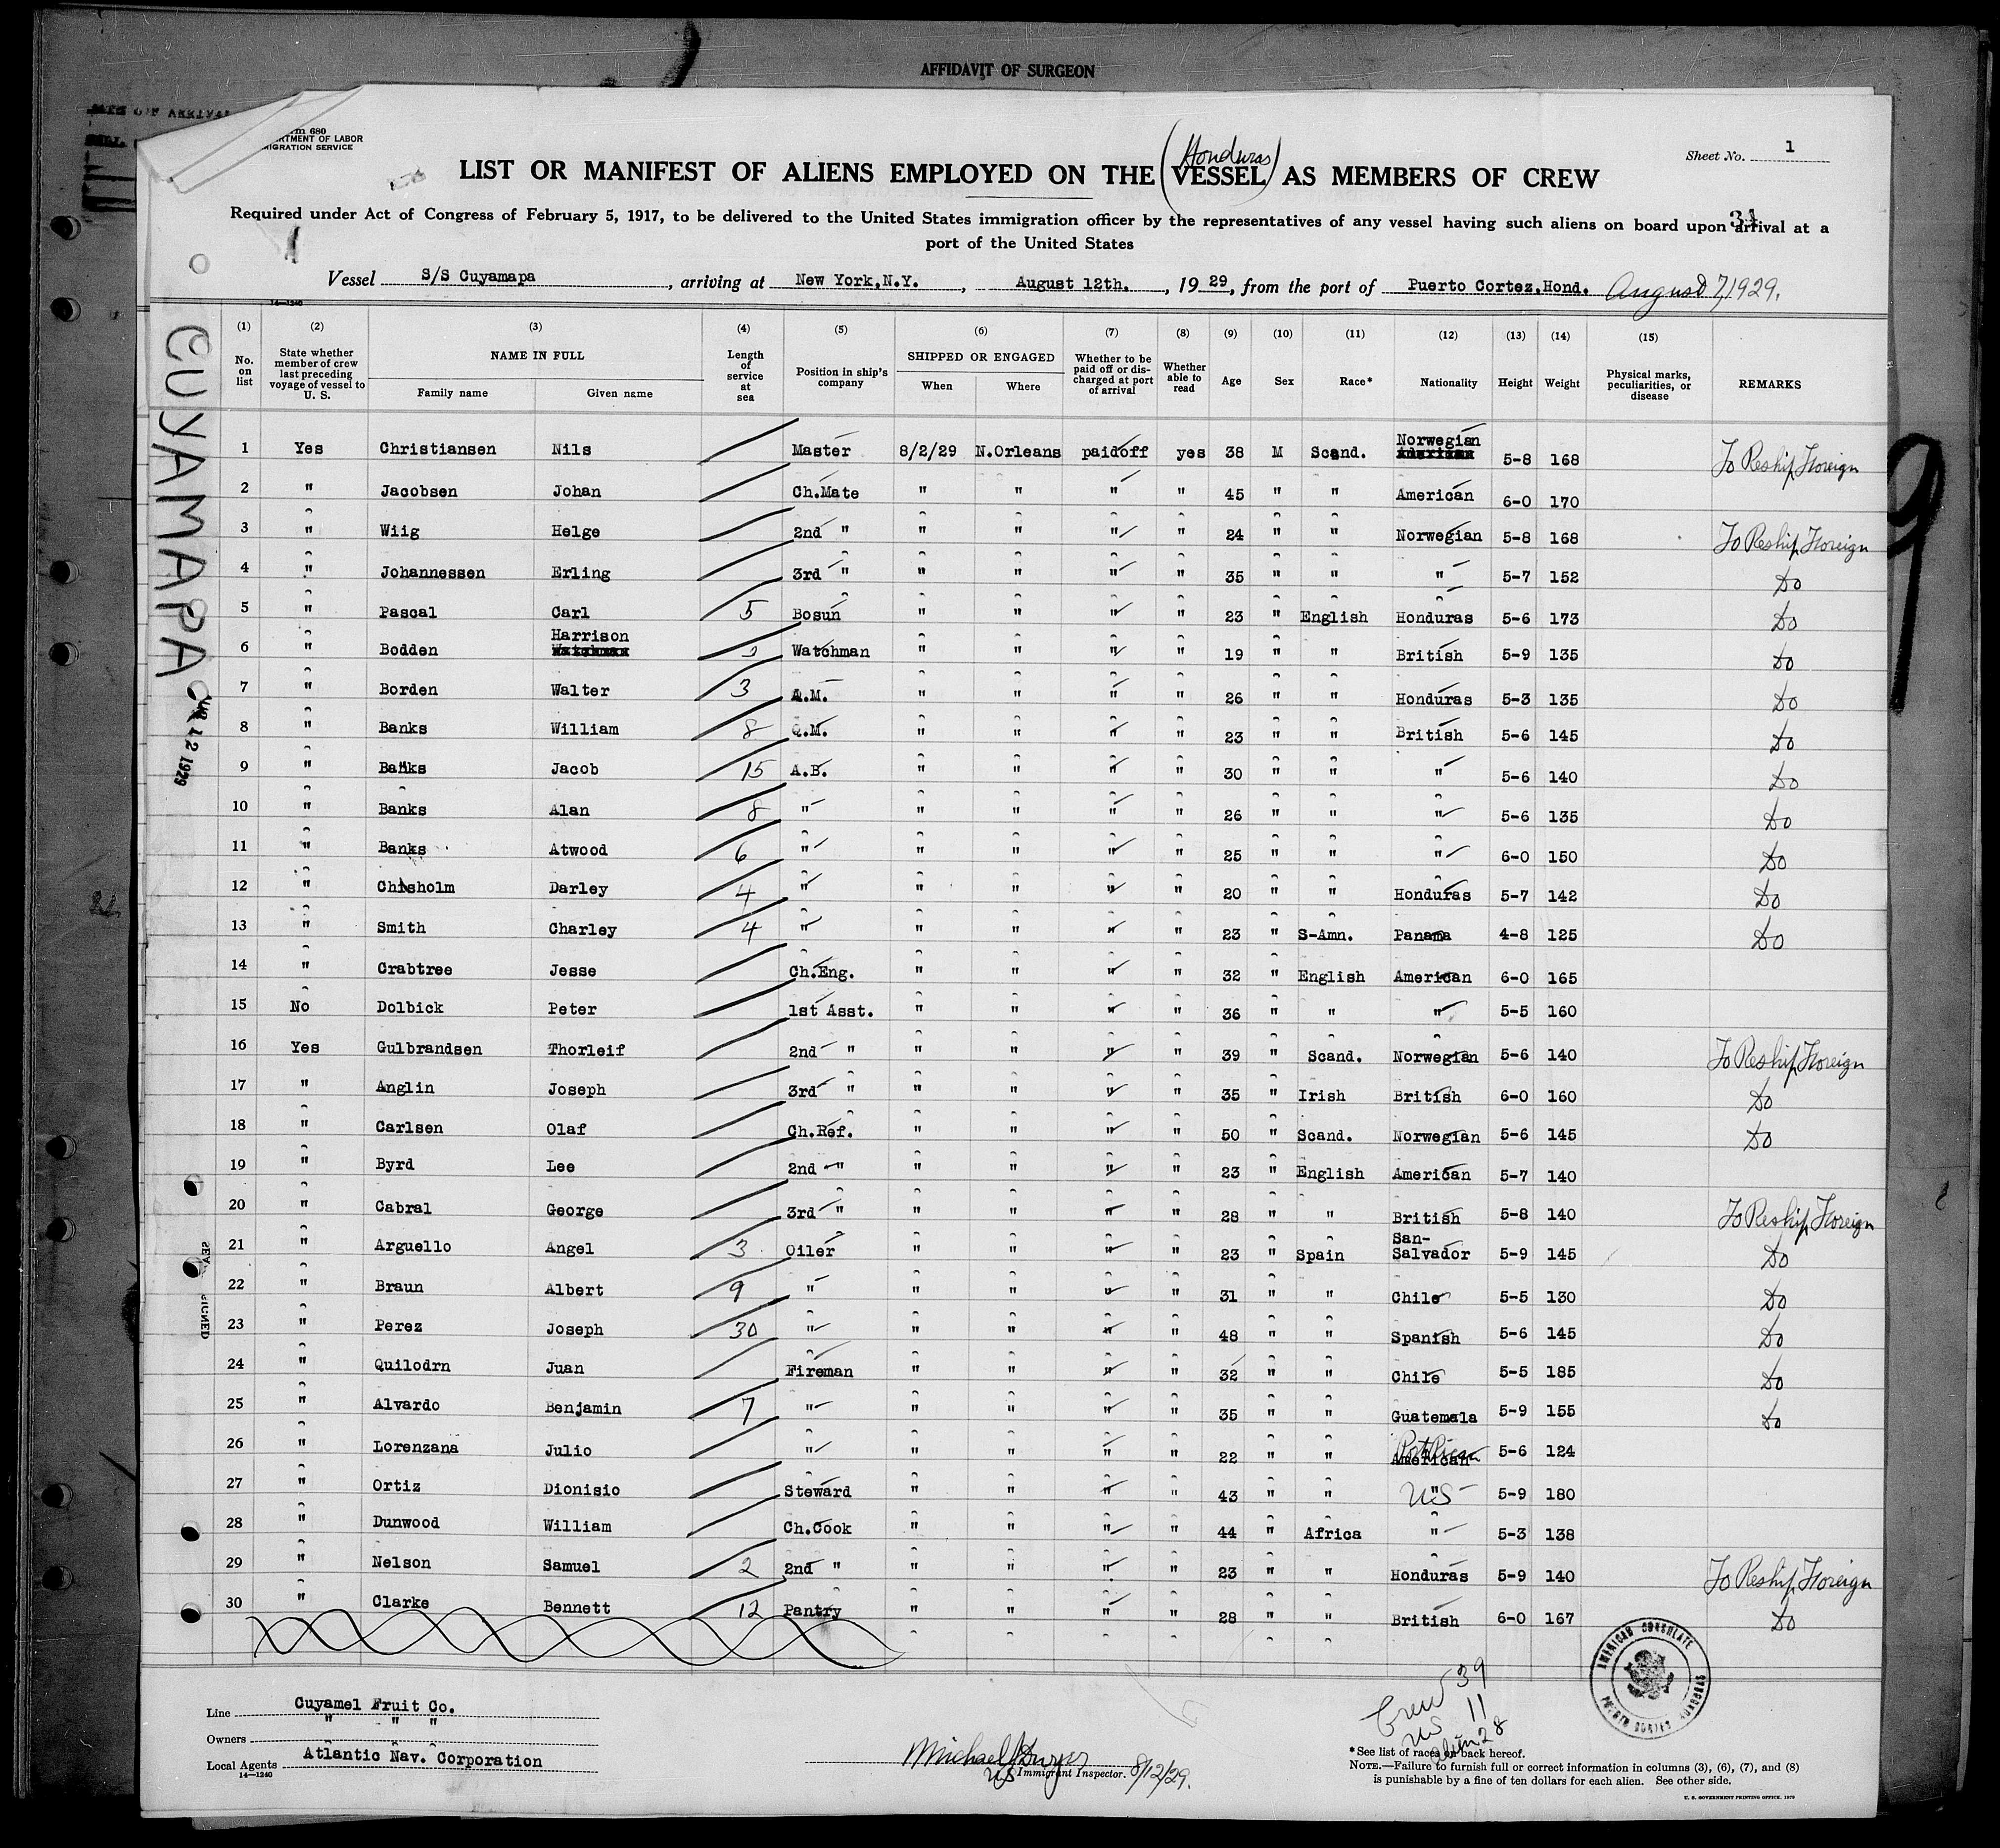 AFFIDAVIT OF SURGEON
rm 680
RTMENT OF LABOR
MIGRATION SERVICE
Sheet No. 1
(Honduras)
LIST OR MANIFEST OF ALIENS EMPLOYED ON THE VESSEL AS MEMBERS OF CREW
Required under Act of Congress of February 5, 1917, to be delivered to the United States immigration officer by the representatives of any vessel having such aliens on board upon arrival at a
port of the United States
Vessel S/S Cuyamapa, arriving at New York,N.Y., August 12th., 1929, from the port of Puerto Cortez,Hond. August 7,1929.
14—1240
CUYAMAPA
12 1929
(1) (2) (3) (4) (5) (6) (7) (8) (9) (10) (11) (12) (13) (14) (15)
No. on list
State whether member of crew last preceding voyage of vessel to U. S.
NAME IN FULL
Family name Given name
Length of service at sea
Position in ship's company
SHIPPED OR ENGAGED
When Where
Whether to be paid off or discharged at port of arrival
Whether able to read
Age Sex Race* Nationality Height Weight
Physical marks, peculiarities, or disease
REMARKS
1 Yes Christiansen Nils Master 8/2/29 N.Orleans paidoff yes 38 M Scand. Norwegian 5-8 168 To Reship Foreign
2 " Jacobsen Johan Ch.Mate " " " " 45 " " American 6-0 170
3 " Wiig Helge 2nd " " " " " 24 " " Norwegian 5-8 168 To Reship Foreign
4 " Johannessen Erling 3rd " " " " " 35 " " " 5-7 152 Do
5 " Pascal Carl 5 Bosun " " " " 23 " English Honduras 5-6 173 Do
6 " Bodden Harrison Watchman " " " " 19 " " British 5-9 135 Do
7 " Borden Walter 3 A.M. " " " " 26 " " Honduras 5-3 135 Do
8 " Banks William 8 Q.M. " " " " 23 " " British 5-6 145 Do
9 " Banks Jacob 15 A.B. " " " " 30 " " " 5-6 140 Do
10 " Banks Alan 8 " " " " " 26 " " " 5-6 135 Do
11 " Banks Atwood 6 " " " " " 25 " " " 6-0 150 Do
12 " Chisholm Darley 4 " " " " " 20 " " Honduras 5-7 142 Do
13 " Smith Charley 4 " " " " " 23 " S-Amn. Panama 4-8 125 Do
14 " Crabtree Jesse Ch.Eng. " " " " 32 " English American 6-0 165
15 No Dolbick Peter 1st Asst. " " " " 36 " " " 5-5 160
16 Yes Gulbrandsen Thorleif 2nd " " " " " 39 " Scand. Norwegian 5-6 140 To Reship Foreign
17 " Anglin Joseph 3rd " " " " " 35 " Irish British 6-0 160 Do
18 " Carlsen Olaf Ch.Ref. " " " " 50 " Scand. Norwegian 5-6 145 Do
19 " Byrd Lee 2nd " " " " " 23 " English American 5-7 140
20 " Cabral George 3rd " " " " " 28 " " British 5-8 140 To Reship Foreign
21 " Arguello Angel 3 Oiler " " " " 23 " Spain San-Salvador 5-9 145 Do
22 " Braun Albert 9 " " " " " 31 " " Chile 5-5 130 Do
23 " Perez Joseph 30 " " " " " 48 " " Spanish 5-6 145 Do
24 " Quilodrn Juan Fireman " " " " 32 " " Chile 5-5 185 Do
25 " Alvardo Benjamin 7 " " " " " 35 " " Guatemala 5-9 155 Do
26 " Lorenzana Julio " " " " " 22 " " American 5-6 124
27 " Ortiz Dionisio Steward " " " " 43 " " US 5-9 180
28 " Dunwood William Ch.Cook " " " " 44 " Africa " 5-3 138
29 " Nelson Samuel 2 2nd " " " " " 23 " " Honduras 5-9 140 To Reship Foreign
30 " Clarke Bennett 12 Pantry " " " " 28 " " British 6-0 167 Do
Crew 39
US 11
alien 28
AMERICAN CONSULATE
PUERTO CORTES HONDURAS
Line Cuyamel Fruit Co.
Owners " " "
Local Agents Atlantic Nav. Corporation
14—1240
Michael
US Immigrant Inspector. 8/12/29.
*See list of races on back hereof.
NOTE.—Failure to furnish full or correct information in columns (3), (6), (7), and (8)
is punishable by a fine of ten dollars for each alien. See other side.
U. S. GOVERNMENT PRINTING OFFICE. 1929